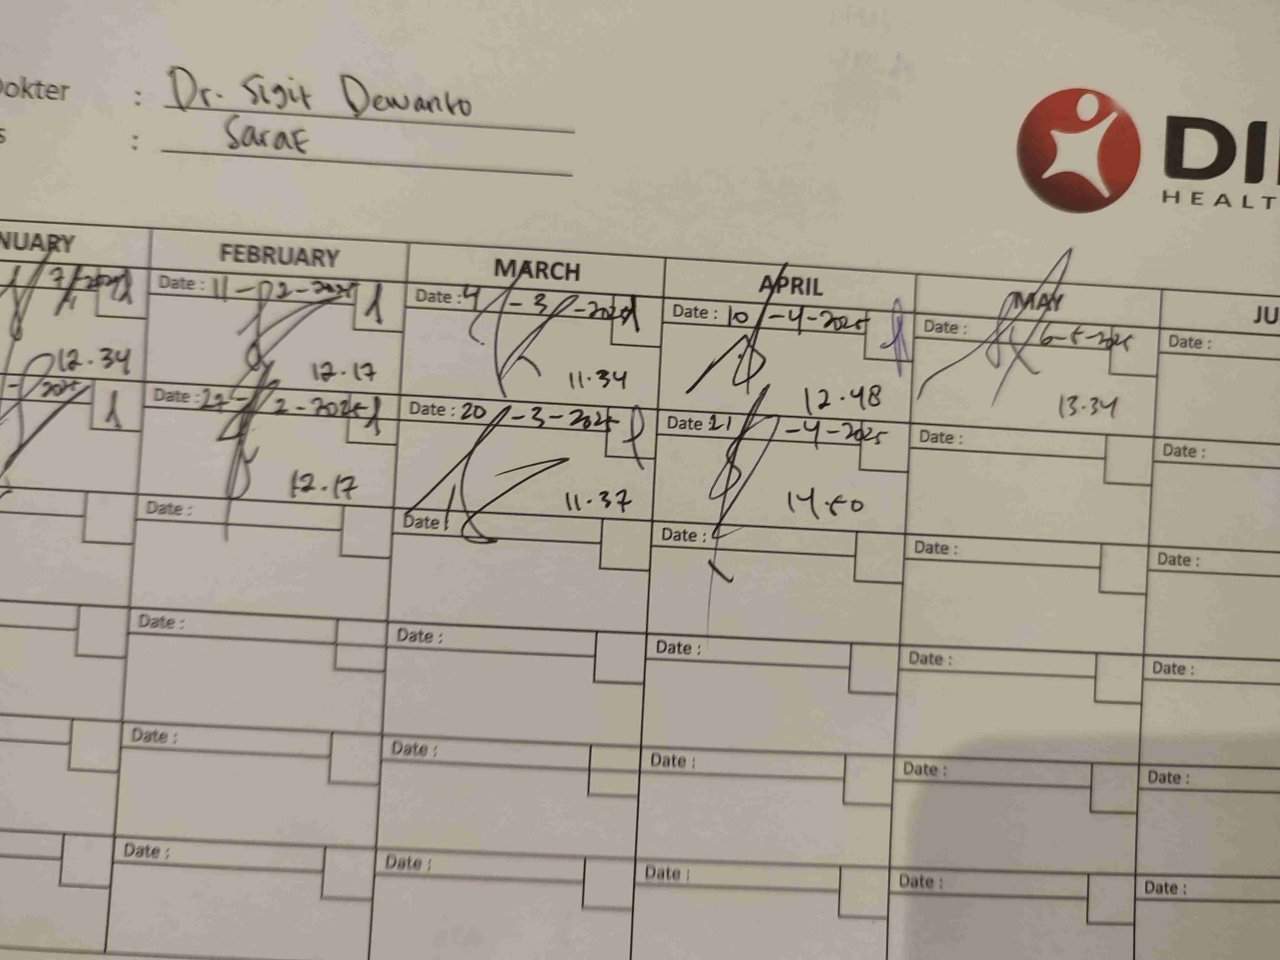 Dokter : Dr. Sigit Dewanto
s : Saraf
DI
HEALT
NUARY FEBRUARY MARCH APRIL MAY JU
7/1/2025 Date : 11-2-2025 Date : 4-3-2025 Date : 10-4-2025 Date : 6-5-2025 Date :
12.34 12.17 11.34 12.48 13.34
2025 Date : 27-2-2025 Date : 20-3-2025 Date : 21-4-2025 Date : Date :
12.17 11.37 14.50
Date : Date : Date : Date : Date :
Date : Date : Date : Date : Date :
Date : Date : Date : Date : Date :
Date : Date : Date : Date : Date :